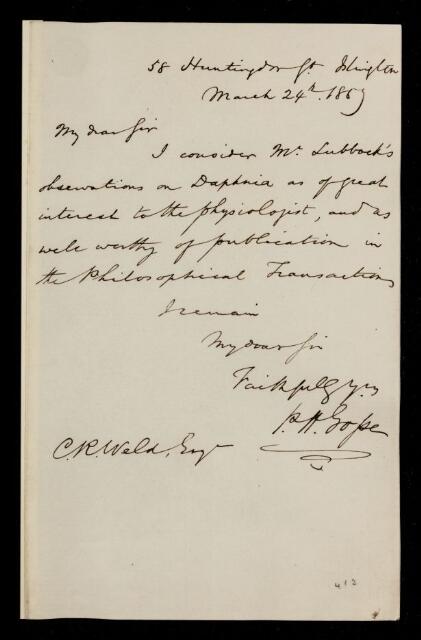 58 Huntingdon St. Islington
March 24th. 1857
My dear Sir
I consider Mr. Lubbock's
observations on Daphnia as of great
interest to the physiologist, and as
well worthy of publication in
the Philosophical Transactions
I remain
My dear Sir
Faithfully yrs
P. H. Gosse
C. R. Weld, Esqr
413